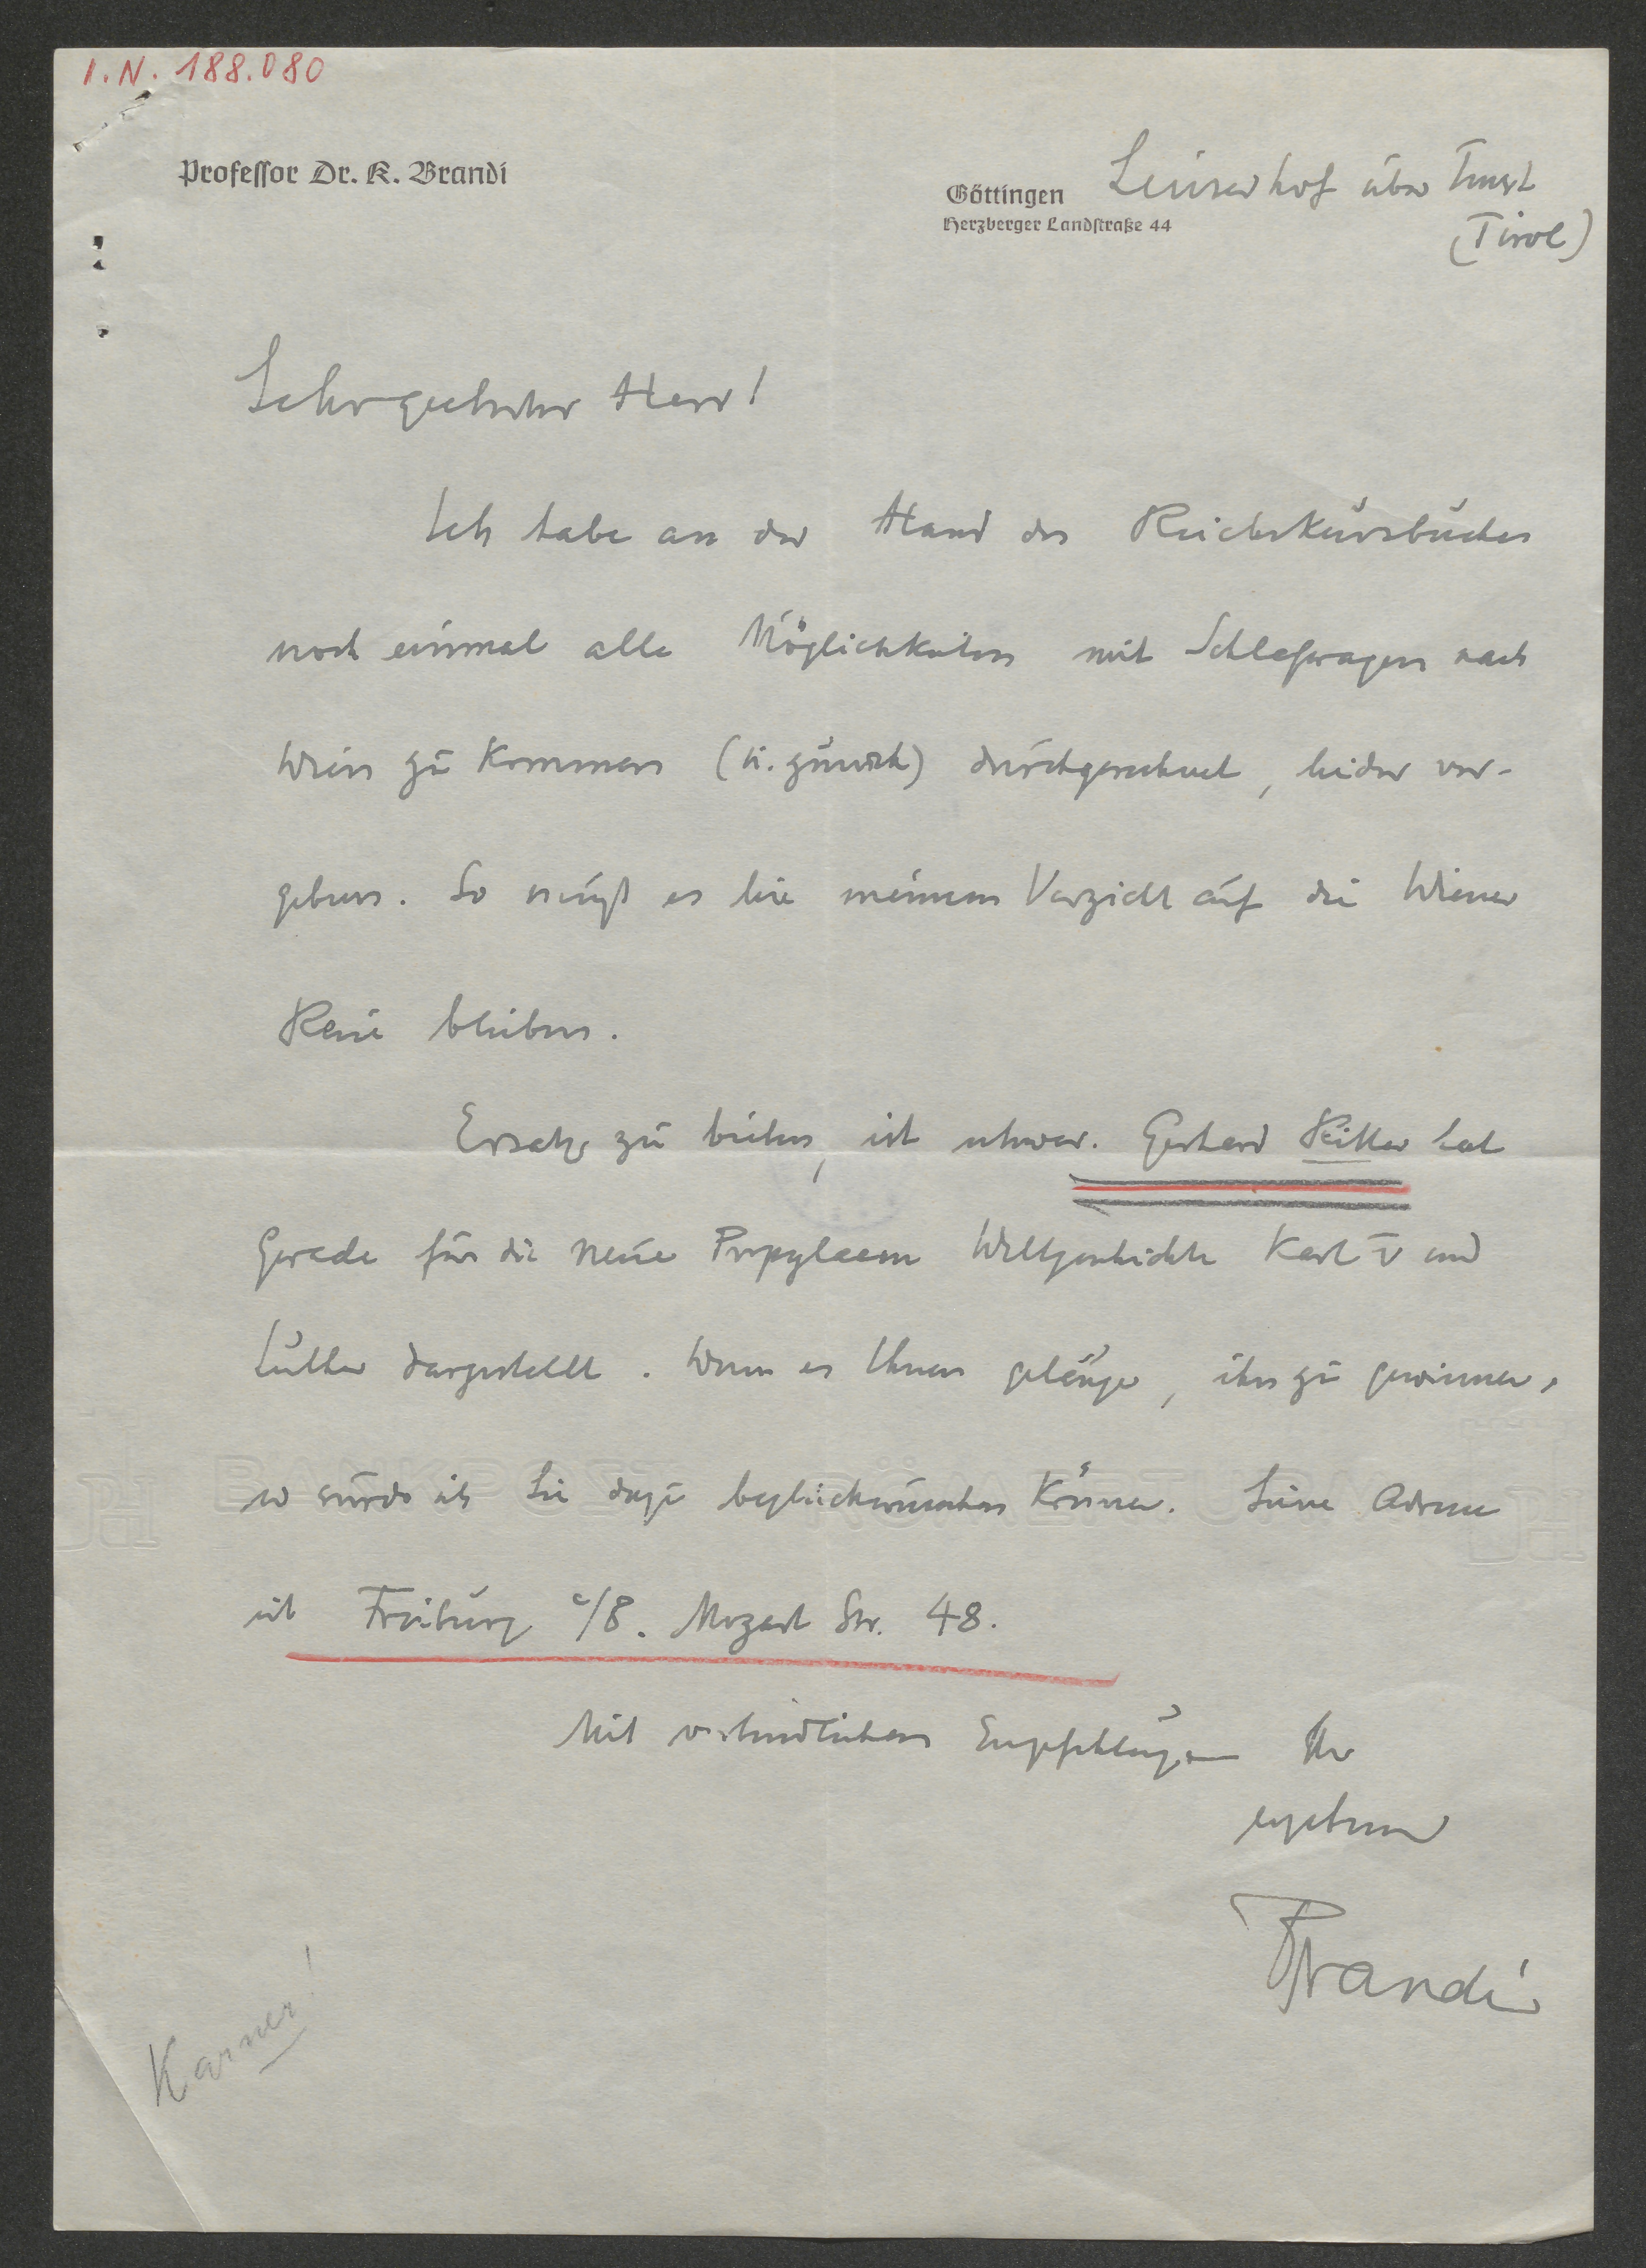 I.N. 188.080
Professor Dr. K. Brandi
Göttingen
Herzberger Landstraße 44
Linserhof über Imst
(Tirol)
Sehr geehrter Herr!
Ich habe an der Hand des Reichskursbuches
noch einmal alle Möglichkeiten mit Schlafwagen nach
Wien zu kommen (u. zurück) durchgerechnet, leider ver-
gebens. So muß es bei meinem Verzicht auf die Wiener
Reise bleiben.
Ersatz zu bieten, ist schwer. Gerhard Ritter hat
Gerade für die neue Propylaeen Weltgeschichte Karl V und
Luther dargestellt. Wenn es Ihnen gelänge, ihn zu gewinnen,
so würde ich Sie dazu beglückwünschen können. Seine Adresse
ist Freiburg i/B. Mozart Str. 48.
Mit verbindlichen Empfehlungen Ihr
ergebener
Brandi
Karner!
BANKPOST RÖMERTURM